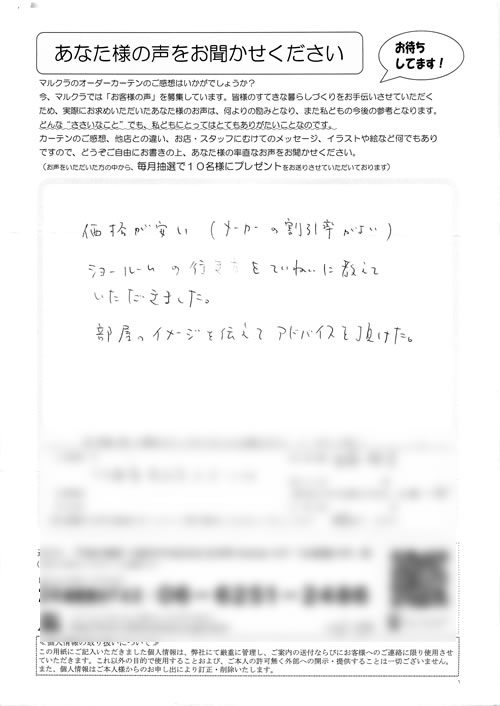 あなた様の声をお聞かせください
お待ち
してます！
マルクラのオーダーカーテンのご感想はいかがでしょうか？
今、マルクラでは「お客様の声」を募集しています。皆様のすてきな暮らしづくりをお手伝いさせていただく
ため、実際にお求めいただいたあなた様のお声は、何よりの励みとなり、また私どもの今後の参考となります。
どんな“ささいなこと”でも、私どもにとってはとてもありがたいことなのです。
カーテンのご感想、他店との違い、お店・スタッフにむけてのメッセージ、イラストや絵など何でもあり
ですので、どうぞご自由にお書きの上、あなた様の率直なお声をお聞かせください。
（お声をいただいた方の中から、毎月抽選で１０名様にプレゼントをお送りさせていただいております）
価格が安い（メーカーの割引率がよい）
ショールームの行き方をていねいに教えて
いただきました。
部屋のイメージを伝えてアドバイスを頂けた。
06-6251-2486
≪個人情報の取り扱いについて≫
この用紙にご記入いただきました個人情報は、弊社にて厳重に管理し、ご案内の送付ならびにお客様へのご連絡に限り使用させ
ていただきます。これ以外の目的で使用することおよび、ご本人の許可無く外部への開示・提供することは一切ございません。
また、個人情報はご本人様からのお申し出により訂正・削除いたします。
1